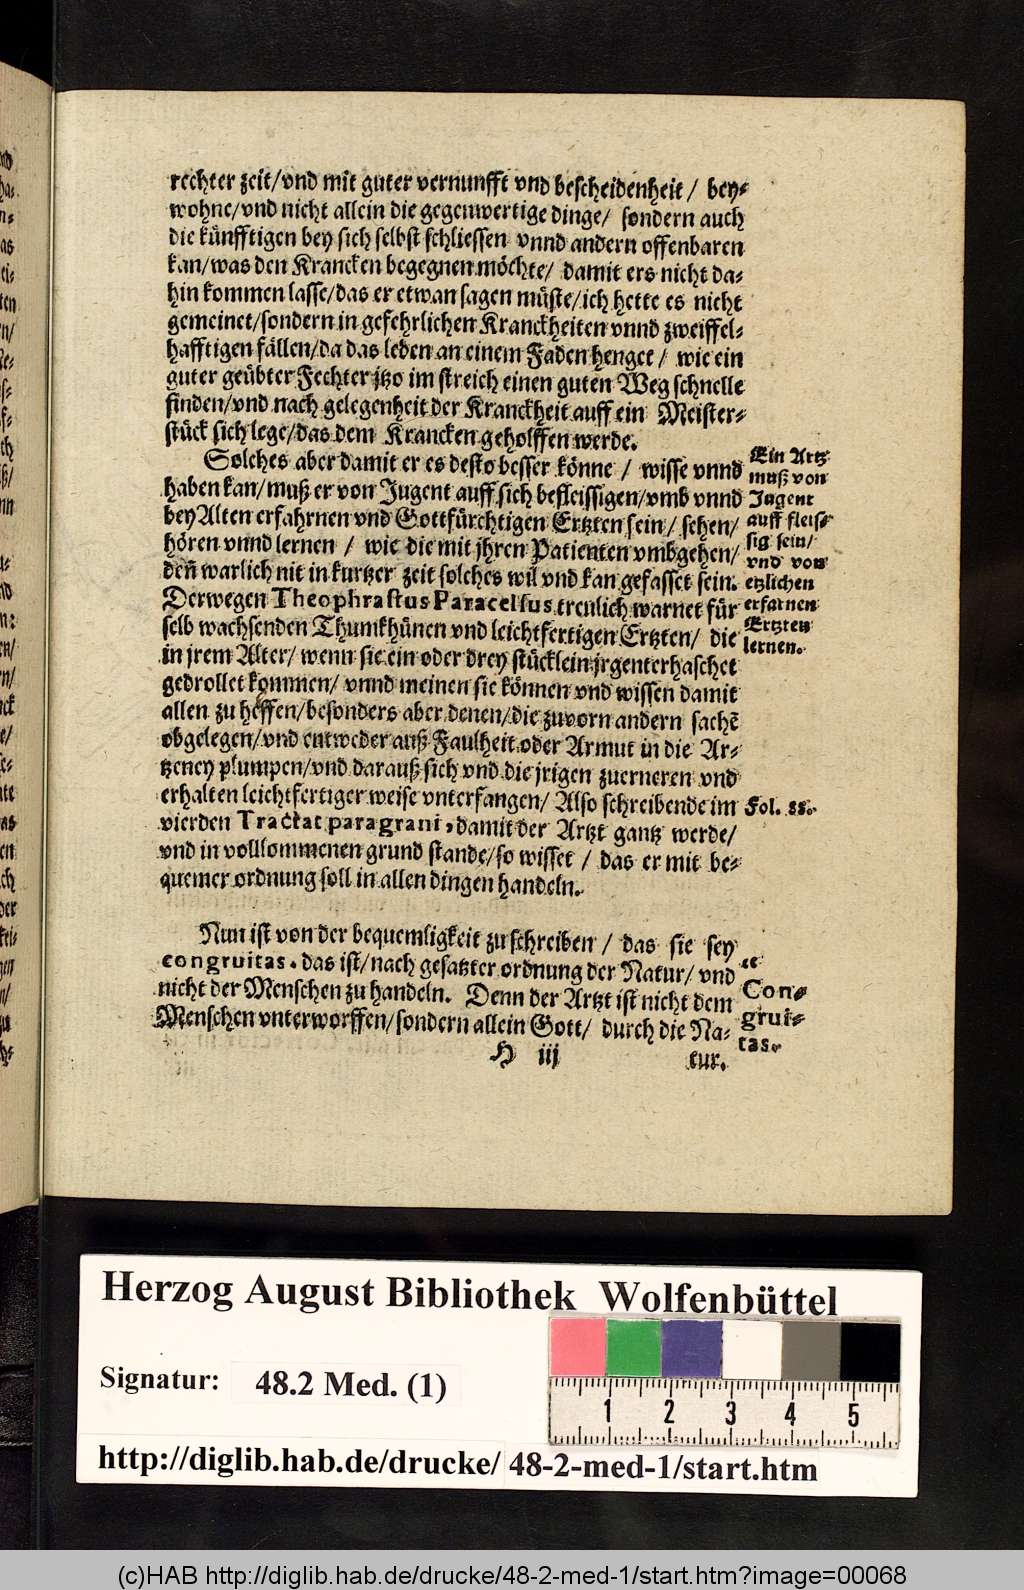 rechter zeit/vnd mit guter vernunfft vnd bescheidenheit / bey-
wohne/vnd nicht allein die gegenwertige dinge/ sondern auch
die künfftigen bey sich selbst schliessen vnnd andern offenbaren
kan/was den Krancken begegnen möchte/ damit ers nicht da-
hin kommen lasse/das er etwan sagen müste/ich hette es nicht
gemeinet/sondern in gefehrlichen Kranckheiten vnnd zweiffel-
hafftigen fällen/da das leben an einem Faden henget / wie ein
guter geübter Fechter jtzo im streich einen guten Weg schnelle
finden/vnd nach gelegenheit der Kranckheit auff ein Meister-
stück sich lege/das dem Krancken geholffen werde.
Solches aber damit er es desto besser könne / wisse vnnd
haben kan/muß er von Jugent auff sich befleissigen/vmb vnnd
bey Alten erfahrnen vnd Gottfürchtigen Ertzten sein/ sehen/
hören vnnd lernen / wie die mit jhren Patienten vmbgehen/
deñ warlich nit in kurtzer zeit solches wil vnd kan gefasset sein.
Derwegen Theophrastus Paracelsus treulich warnet für
selb wachsenden Thumkhünen vnd leichtfertigen Ertzten/ die
in jrem Alter/ wenn sie ein oder drey stücklein jrgent erhaschet
gedrollet kommen/ vnnd meinen sie können vnd wissen damit
allen zu helffen/besonders aber denen/die zuvorn andern sachẽ
obgelegen/vnd entweder auß Faulheit oder Armut in die Ar-
tzeney plumpen/vnd darauß sich vnd die jrigen zuerneren vnd
erhalten leichtfertiger weise vnterfangen/ Also schreibende im
vierden Tractat paragrani, damit der Artzt gantz werde/
vnd in vollkommenen grund stande/so wisset / das er mit be-
quemer ordnung soll in allen dingen handeln.
Ein Artz
muß von
Jugent
auff fleis-
sig sein/
vnd von
etzlichen
erfarnen
Ertzten
lernen.
Fol. 88.
Nun ist von der bequemligkeit zu schreiben / das sie sey
congruitas. das ist/nach gesatzter ordnung der Natur/ vnd
nicht der Menschen zu handeln. Denn der Artzt ist nicht dem
Menschen vnterworffen/sondern allein Gott/ durch die Na-
Con-
grui-
tas.
H iij
tur.
Herzog August Bibliothek Wolfenbüttel
Signatur: 48.2 Med. (1)
1 2 3 4 5
http://diglib.hab.de/drucke/ 48-2-med-1/start.htm
(c)HAB http://diglib.hab.de/drucke/48-2-med-1/start.htm?image=00068